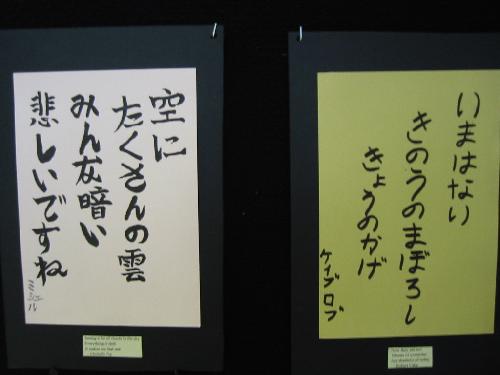 空に
たくさんの雲
みんな暗い
悲しいですね
ミシェル
いまはない
きのうのまぼろし
きょうのかげ
ケイブ ロブ